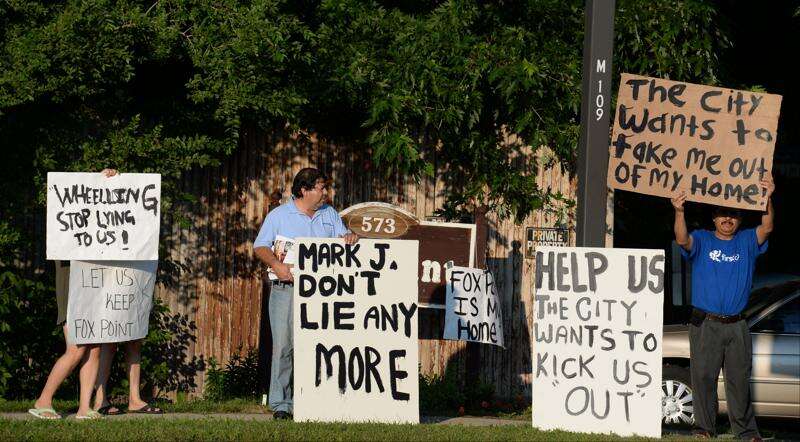 "WHEELLING
STOP LYING
TO US!
LET US
KEEP
FOX POINT
573
MARK J.
DON'T
LIE ANY
MORE
FOX
IS
Home
M 109
PRIVATE
PROPERTY
HELP US
THE CITY
WANTS TO
KICK US
"OUT"
The City
wants to
take me out
of my Home!
first